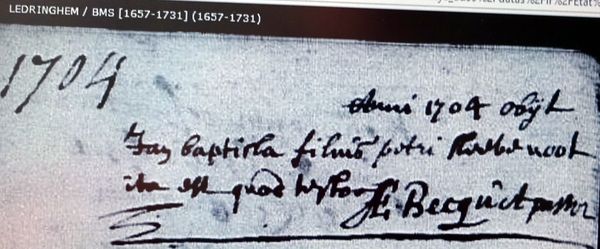 LEDRINGHEM / BMS [1657-1731] (1657-1731)
1704
Anni 1704 obijt
Jan baptista filius petri
ita est quod testor Becquet pastor